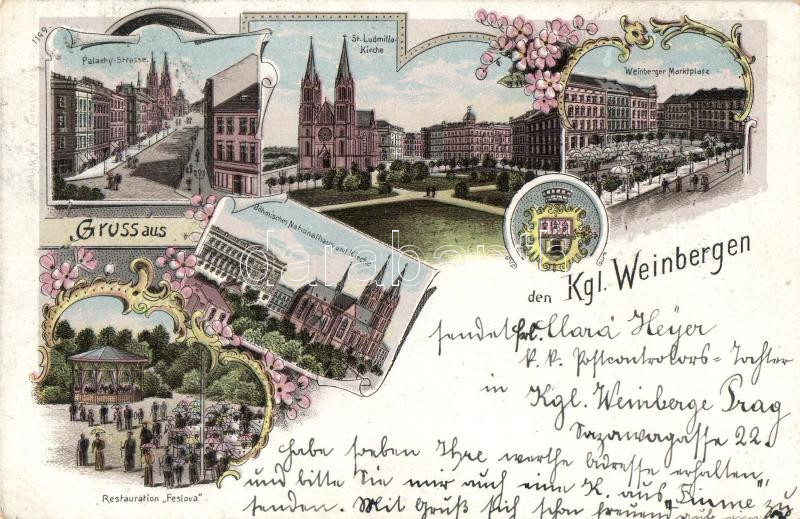 1199
Palacky-Strasse.
St. Ludmilla-
Kirche
Weinberger Marktplatz
Gruss aus
Böhmisches Nationalhaus und Kirche
den Kgl. Weinbergen
Restauration „Feslova"
darabanth
sendet Frl. Clara Heyer
k. k. Postcontrolors-Tochter
in Kgl. Weinberge Prag
Sazawagasse 22.
habe soeben Ihre werthe Adresse erhalten
und bitte Sie mir auch eine K. aus „Fiume" zu
senden. Mit Gruß sich schon freuend auf